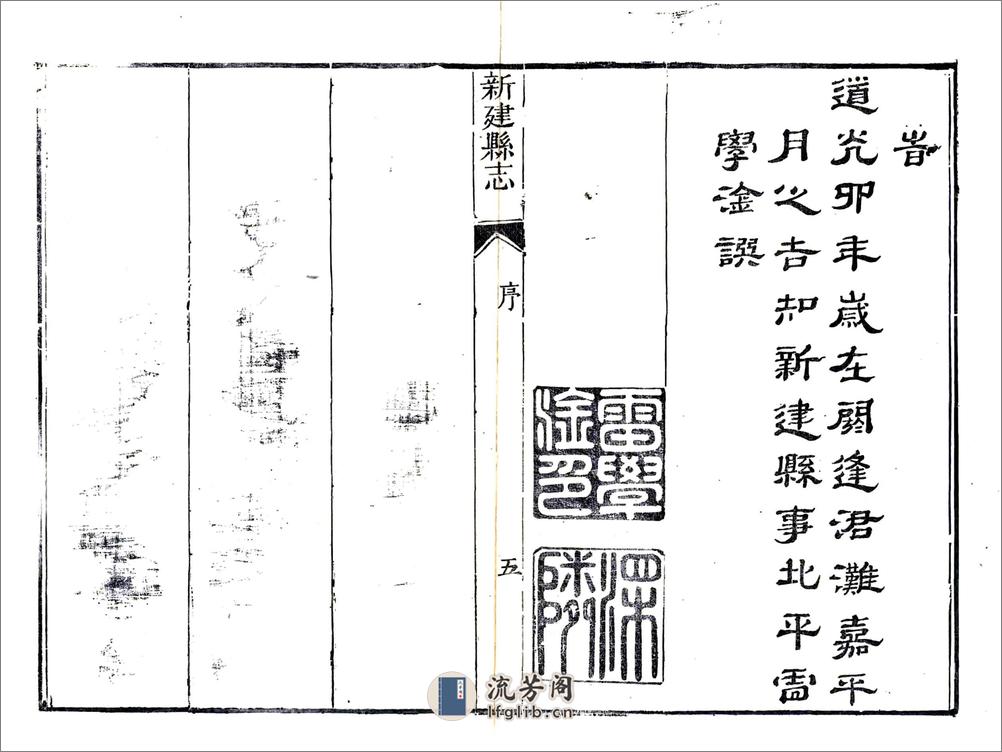 旹
道光四年歲在閼逢涒灘嘉平
月之吉知新建縣事北平雷
學淦譔
雷學淦印
新建縣志
序
五
流芳阁
lfglib.cn